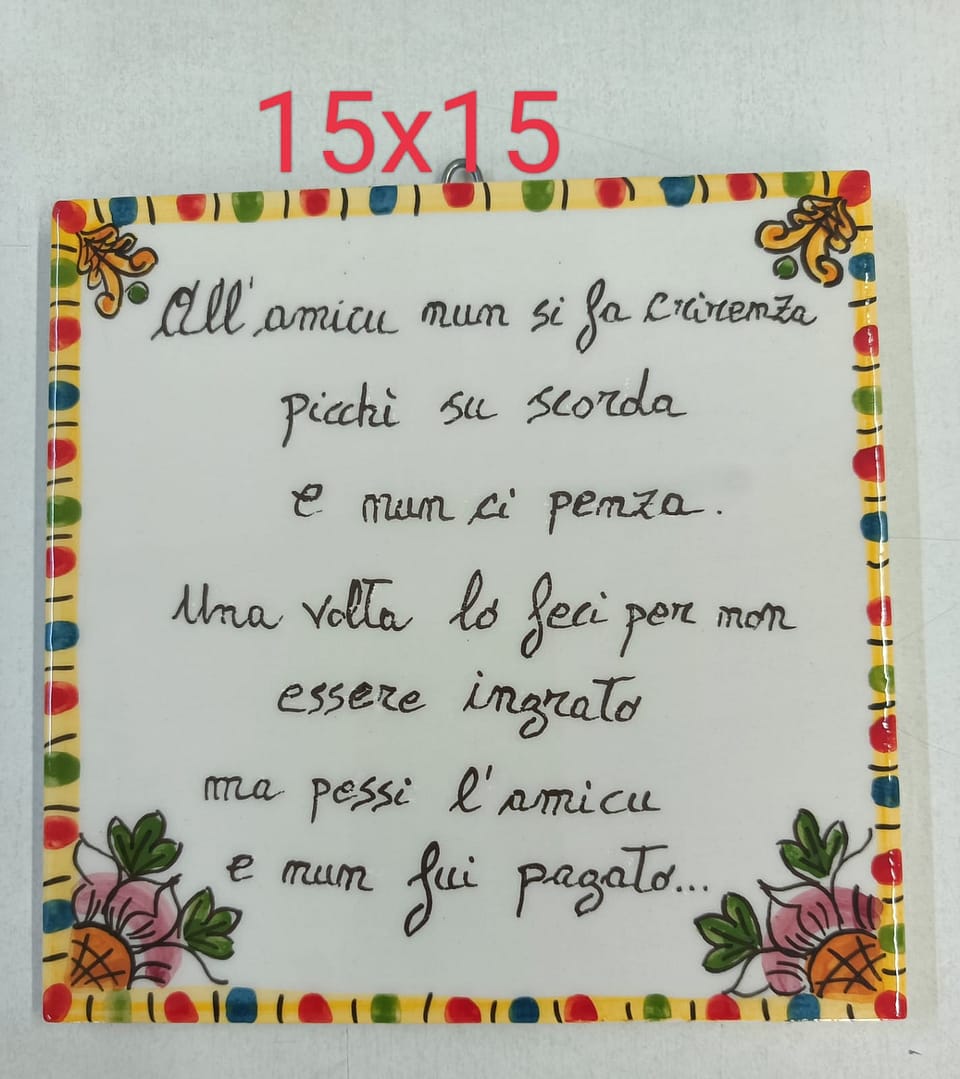 15x15
All'amicu nun si fa crirenza
picchì su scorda
e nun ci penza.
Una volta lo feci per non
essere ingrato
ma pessi l'amicu
e nun fui pagato...